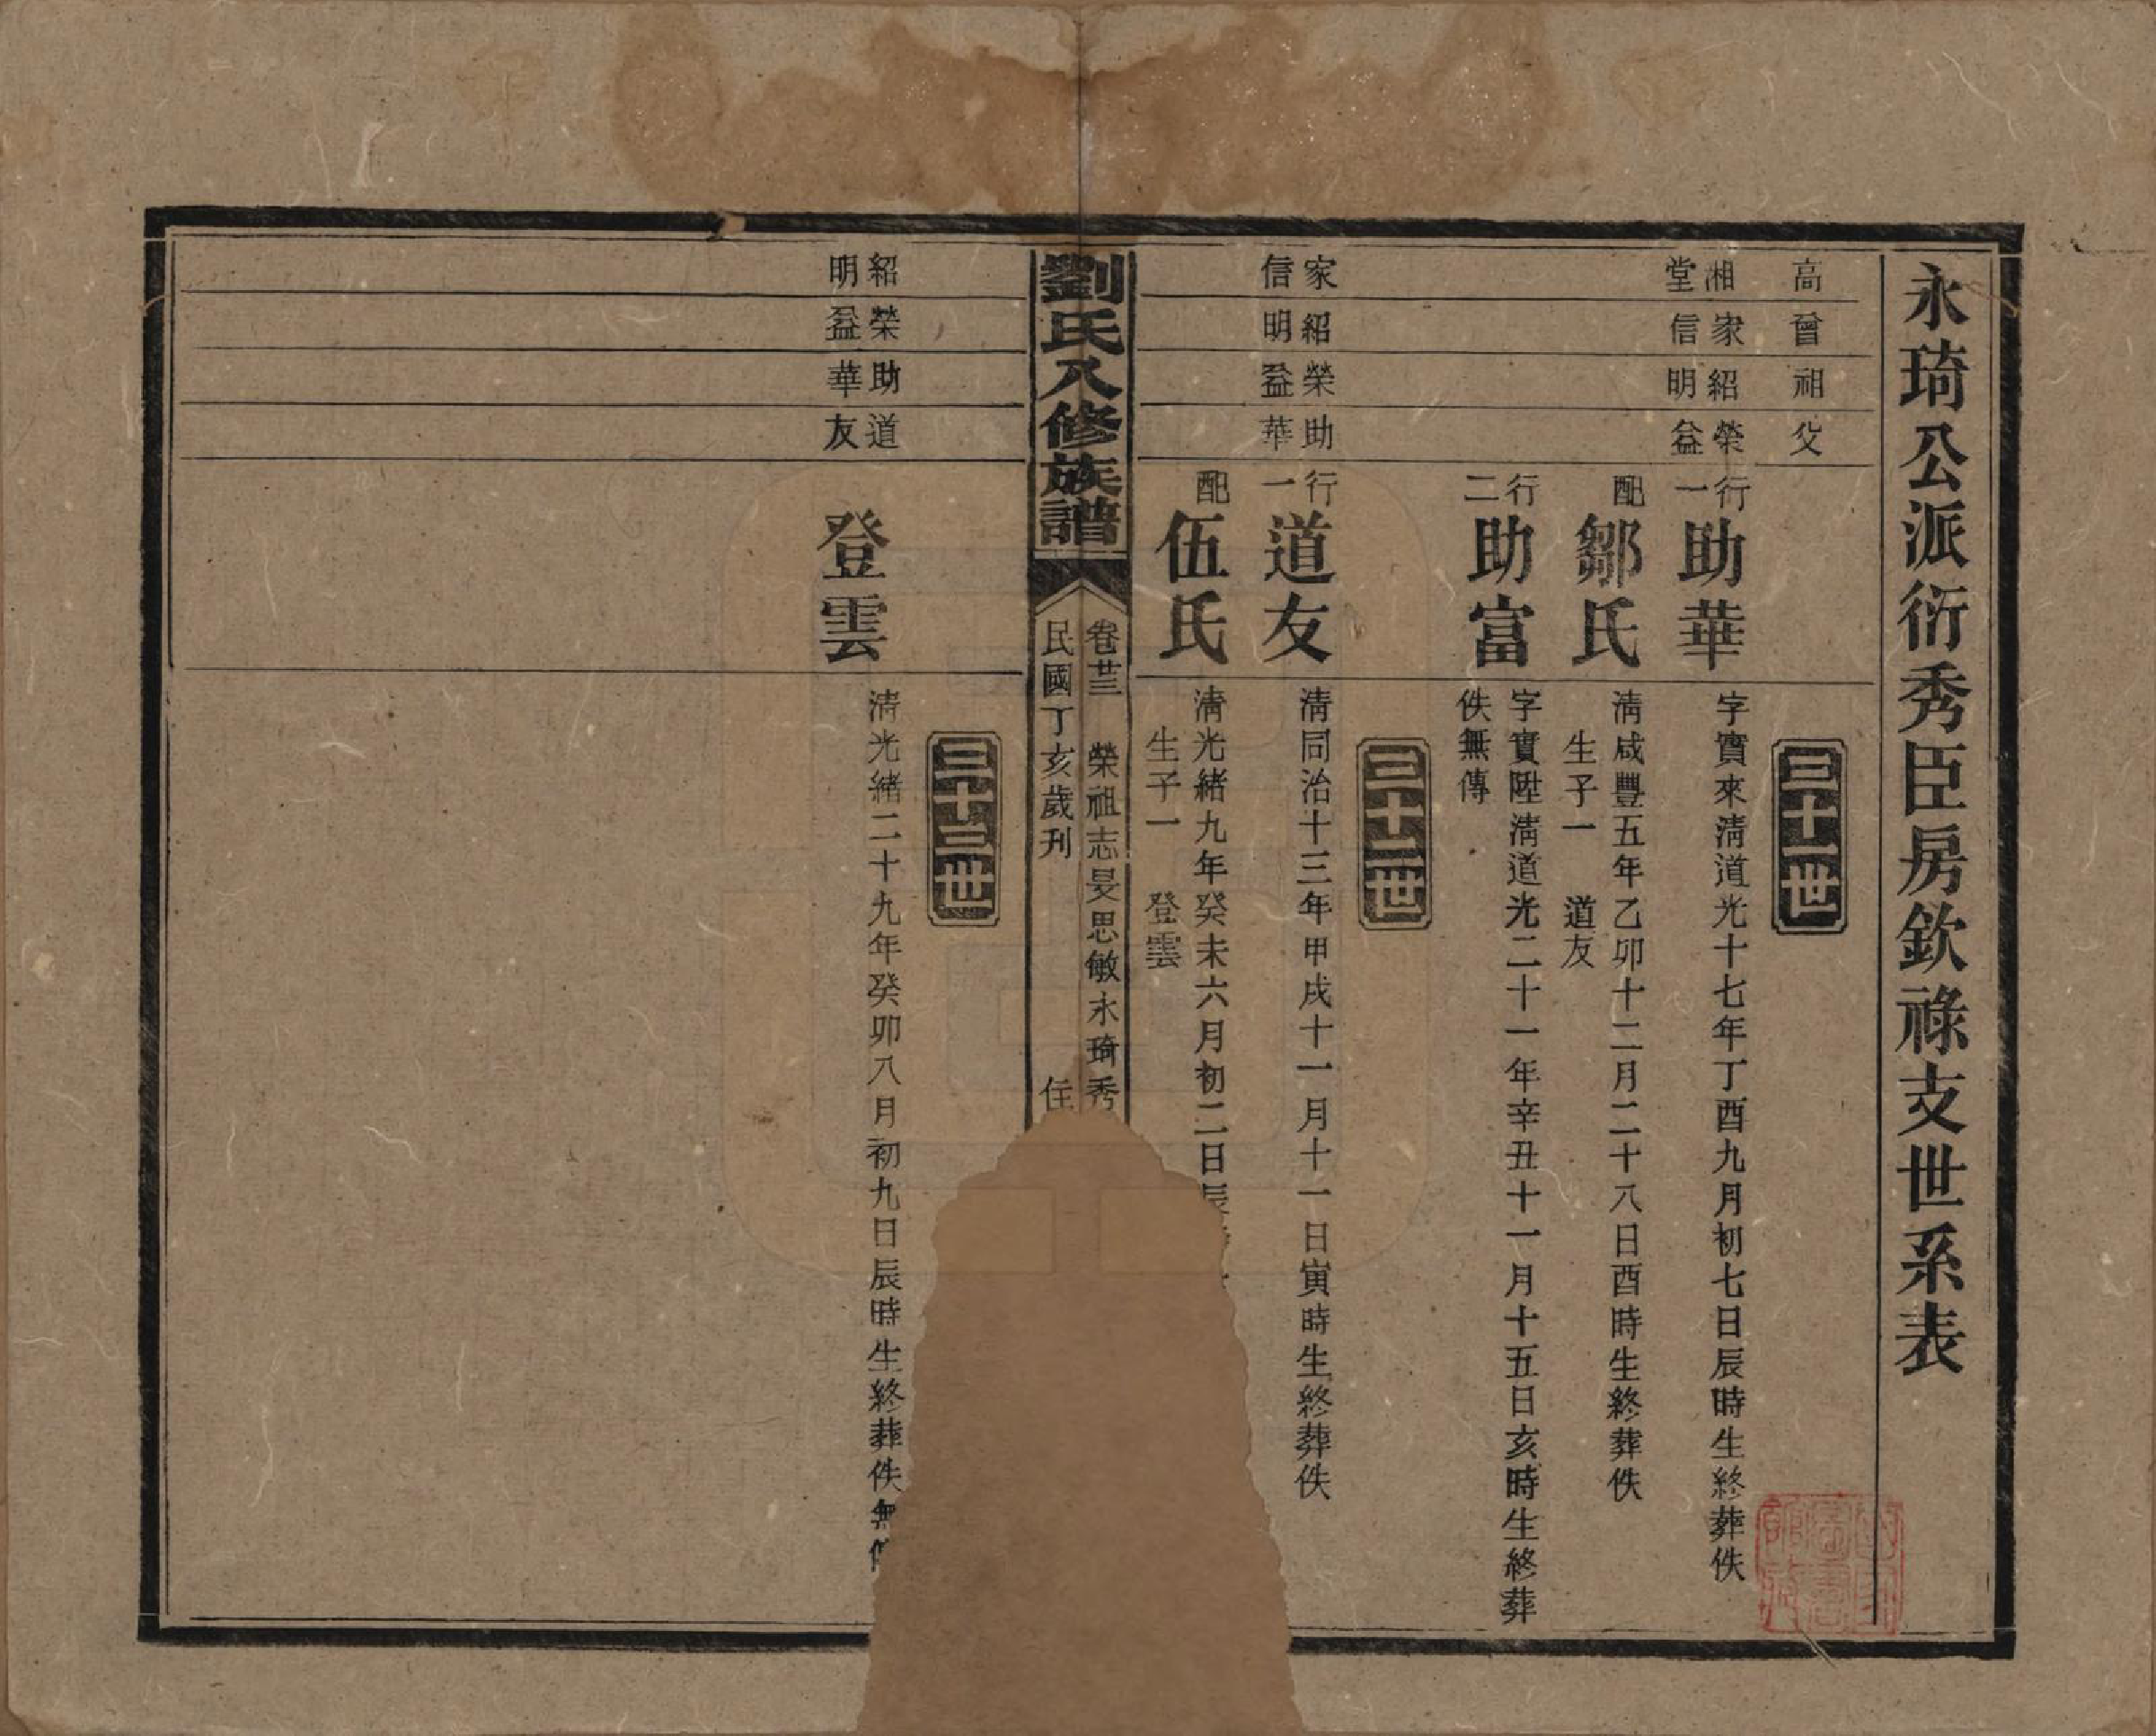 永琦公派衍秀臣房欽祿支世系表
高
曾
祖
父
三十一世
湘堂
家信
紹明
榮益
行一
助華
字實來淸道光十七年丁酉九月初七日辰時生終葬佚
配
鄒氏
淸咸豐五年乙卯十二月二十八日酉時生終葬佚
生子一 道友
行二
助富
字實陞淸道光二十一年辛丑十一月十五日亥時生終葬
佚無傳
三十二世
家信
紹明
榮益
助華
行一
道友
淸同治十三年甲戌十一月十一日寅時生終葬佚
配
伍氏
淸光緒九年癸未六月初二日辰
生子一 登雲
劉氏八修族譜
卷廿三 榮祖志旻思敏永琦秀
民國丁亥歲刊
三十三世
紹明
榮益
助華
道友
登雲
淸光緒二十九年癸卯八月初九日辰時生終葬佚無傳